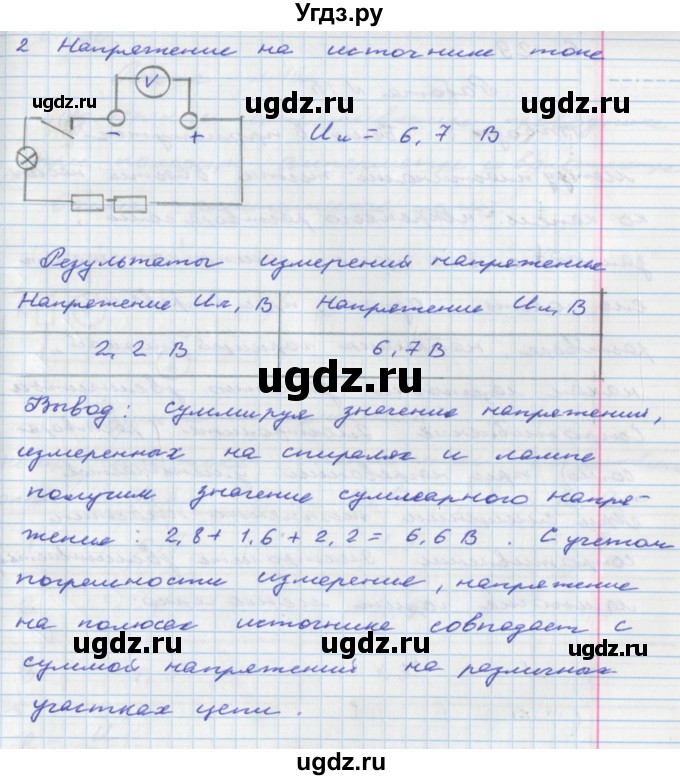 Угдз.ру
2 Напряжение на источнике тока
ugdz.ru
V
ugdz.ru
− +
Uи = 6,7 В
ugdz.ru
Результаты измерений напряжение
Напряжение Uл, В Напряжение Uи, В
2,2 В 6,7 В
ugdz.ru
Вывод: суммируя значение напряжений,
измеренных на спиралях и лампе
получим значение суммарного напря-
жение: 2,8+1,6+2,2=6,6 В. С учетом
ugdz.ru
погрешности измерение, напряжение
на полюсах источника совпадает с
ugdz.ru ugdz.ru
суммой напряжений на различных
участках цепи.
ugdz.ru